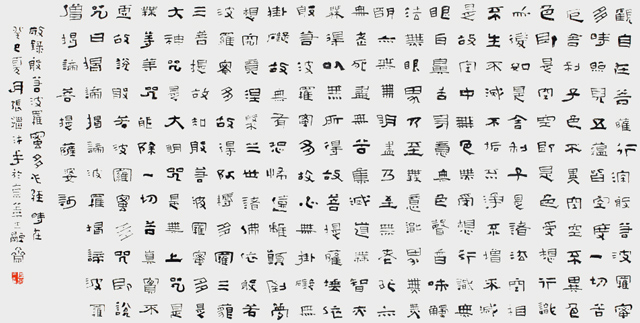 觀自在菩薩行深般若波羅蜜
多時照見五蘊皆空度一切苦
厄舍利子色不異空空不異色
色即是空空即是色受想行識
亦復如是舍利子是諸法空相
不生不滅不垢不淨不增不減
是故空中無色無受想行識無
眼耳鼻舌身意無色聲香味觸
法無眼界乃至無意識界無無
明亦無無明盡乃至無老死亦
無老死盡無苦集滅道無智亦
無得以無所得故菩提薩埵依
般若波羅蜜多故心無掛礙無
掛礙故無有恐怖遠離顛倒夢
想究竟涅槃三世諸佛依般若
波羅蜜多故得阿耨多羅三藐
三菩提故知般若波羅蜜多是
大神咒是大明咒是無上咒是
無等等咒能除一切苦真實不
虛故說般若波羅蜜多咒即說
咒曰揭諦揭諦波羅揭諦波羅
僧揭諦菩提薩婆訶
敬錄般若波羅蜜多心經時在
癸巳夏月張